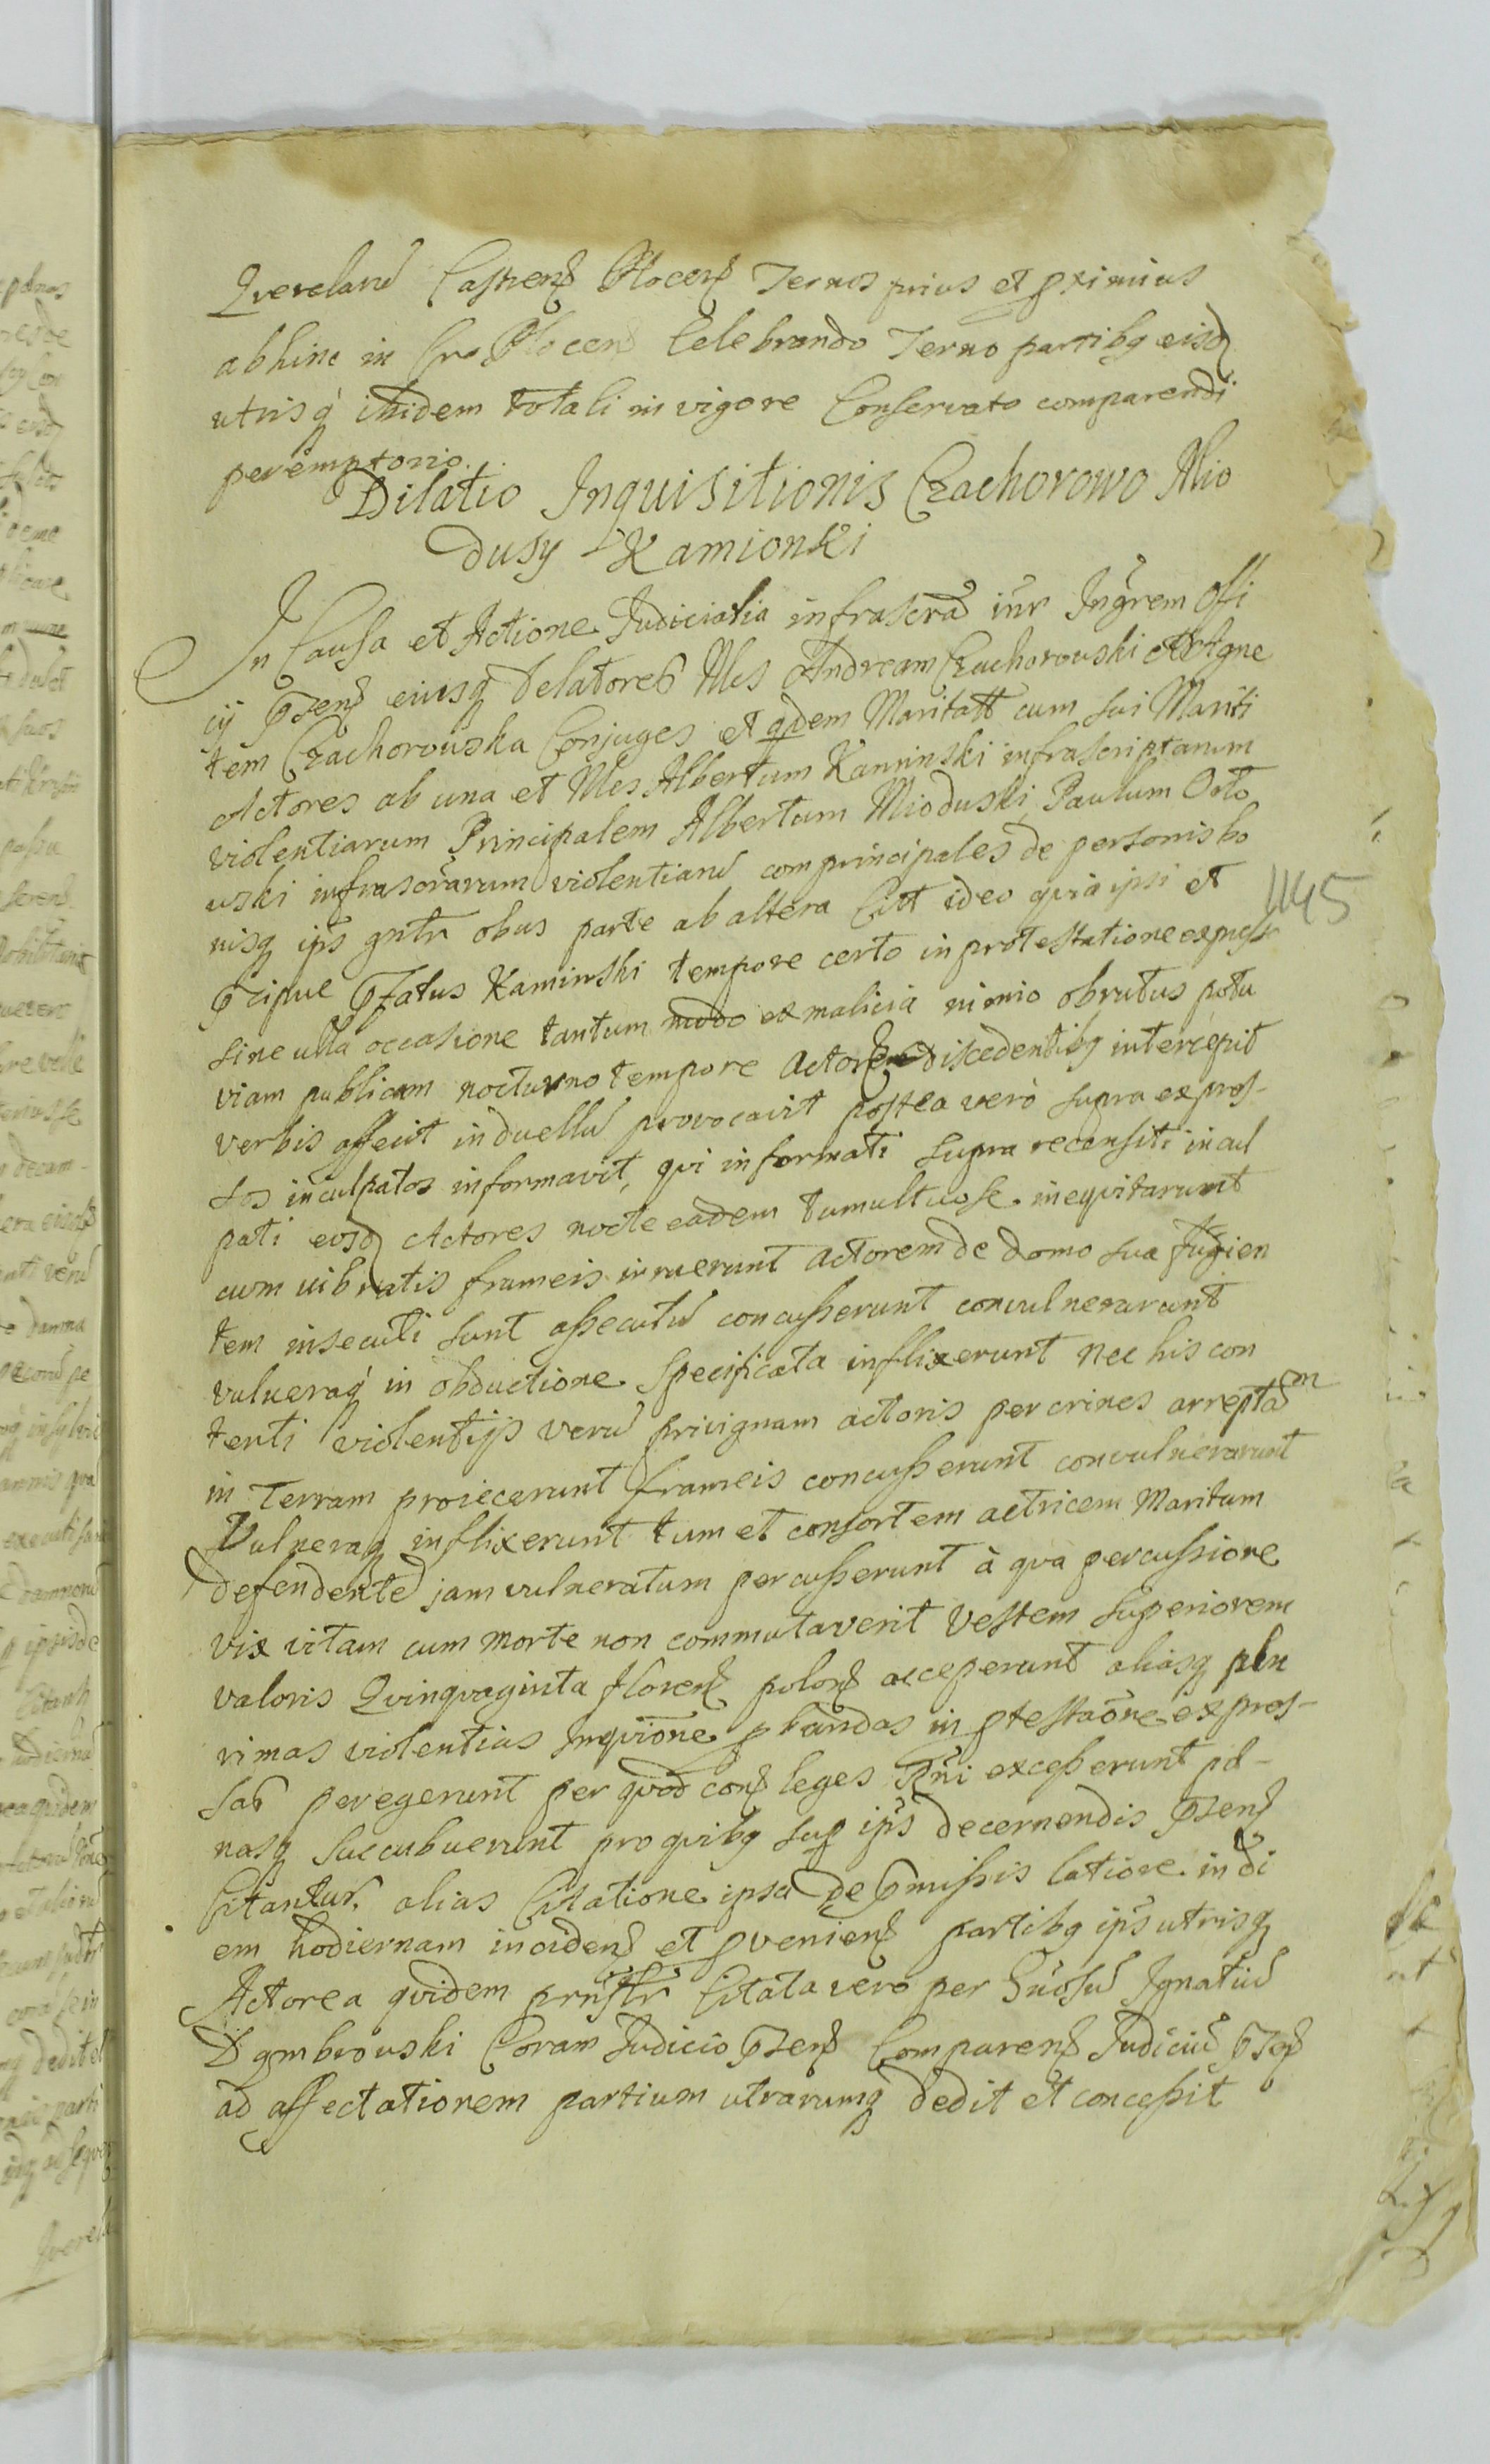 Querelarū Castrenſ Plocenſ Termos prius et proximius
abhinc in Cro Plocen Celebrando Termo partibq eisdq
utrisq ibidem totali in vigore Conservato comparendi
peremptorio.
Dilatio Inquisitionis Czachorowo Mio
dusy Kamionki
In Causa et Actione Judiciaria infrascrā inr Ingrem Offi
cÿ pñtenſ eiusq Delatores Nles Andream Czachorowski et Agne
tem Czachorowska Conjuges et qdem Maritatt cum sui Mariti
Actores ab una et Nles Albertum Kaminski infrascriptarum
violentiarum Principalem Albertum Mioduski, Paulum Osto
wski infrascrarum violentiarū comprincipales de personis bo
nisq ips gntr obus parte ab altera Citt ideo quia ipsi et
pcipue pfatus Kaminski tempore certo in protestatione expresso
sine ulla occasione tantum modo ex malicia nimio obrutus potu
viam publicam nocturno tempore Actoribus discedentibq intercepit
verbis affecit in duellū provocavit postea verò supra expres-
sos inculpatos informavit, qui informati supra recensiti incul
pati eosdq Actores nocte eadem tumultuose inequitarunt
cum vibratis frameis irruerunt Actorem de domo sua fugien
tem insecuti sunt assecutū concusserunt convulnerarunt
vulneraq in obductione specificata inflixerunt nec his con
tenti violentÿs verū privignam actoris per crines arreptam
in terram proiecerunt frameis concusserunt convulnerarunt
Vulneraq inflixerunt tum et consortem actricem Maritum
defendente jam vulneratum percusserunt à qva percussione
vix vitam cum morte non commutaverit Vestem superiorem
valoris Qvinqvaginta florenſ polonſ acceperunt aliasq plu
rimas violentias Inqvione pbandas in ptestaone expres-
sas peregerunt per qvod conſ leges Rni excesserunt pæ-
nasq succubuerunt pro qvibq sup ips decernendis pñtenſ
Citantur. alias Citatione ipsa de pmissis latiore in di
em hodiernam incidenſ et pvenienſ partibq ips utrisq
Actorea qvidem prnstr Citata vero per Gnosū Ignatiū
Dąmbrowski Coram Judicio pñtenſ Comparenſ Judiciū pñtenſ
ad affectationem partium utrarumq dedit et concessit
1145